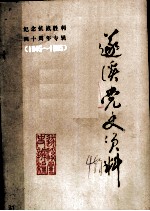 纪念抗战胜利
四十周年专辑
(1945~1985)
遂溪党史资料